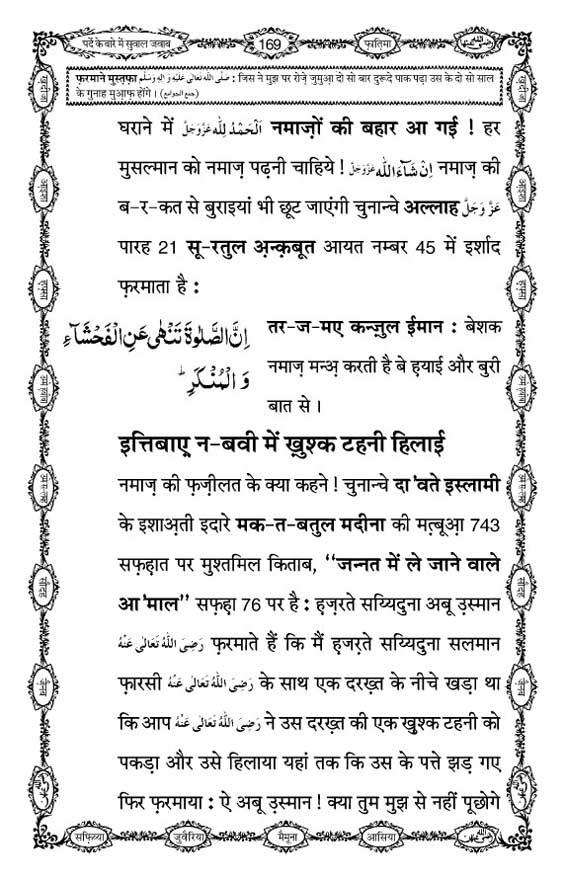 पर्दे के बारे में सुवाल जवाब
169
फ़ातिमा
फ़रमाने मुस्तफ़ा صَلَّى اللهُ تَعَالٰى عَلَيْهِ وَاٰلِهٖ وَسَلَّم : जिस ने मुझ पर रोज़े जुमुआ़ दो सो बार दुरूदे पाक पढ़ा उस के दो सो साल
के गुनाह मुआ़फ़ होंगे । (جمع الجوامع)
घराने में اَلْحَمْدُ لِلّٰه عَزَّوَجَلَّ नमाज़ों की बहार आ गई ! हर
मुसल्मान को नमाज़ पढ़नी चाहिये ! اِنْ شَآءَ اللّٰه عَزَّوَجَلَّ नमाज़ की
ब-र-कत से बुराइयां भी छूट जाएंगी चुनान्चे अल्लाह عَزَّوَجَلَّ
पारह 21 सू-रतुल अ़न्कबूत आयत नम्बर 45 में इर्शाद
फ़रमाता है :
اِنَّ الصَّلٰوةَ تَنْهٰى عَنِ الْفَحْشَآءِ
وَ الْمُنْكَرِ ؕ
तर-ज-मए कन्ज़ुल ईमान : बेशक
नमाज़ मन्अ़ करती है बे ह़याई और बुरी
बात से ।
इत्तिबाए़ न-बवी में ख़ुश्क टहनी हिलाई
नमाज़ की फ़ज़ीलत के क्या कहने ! चुनान्चे दा'वते इस्लामी
के इशाअ़ती इदारे मक-त-बतुल मदीना की मत़्बूआ़ 743
सफ़ह़ात पर मुश्तमिल किताब, ‘‘जन्नत में ले जाने वाले
आ'माल’’ सफ़ह़ा 76 पर है : ह़ज़रते सय्यिदुना अबू उ़स्मान
رَضِىَ اللّٰهُ تَعَالٰى عَنْهُ फ़रमाते हैं कि मैं ह़ज़रते सय्यिदुना सलमान
फ़ारसी رَضِىَ اللّٰهُ تَعَالٰى عَنْهُ के साथ एक दरख़्त के नीचे खड़ा था
कि आप رَضِىَ اللّٰهُ تَعَالٰى عَنْهُ ने उस दरख़्त की एक ख़ुश्क टहनी को
पकड़ा और उसे हिलाया यहां तक कि उस के पत्ते झड़ गए
फिर फ़रमाया : ऐ अबू उ़स्मान ! क्या तुम मुझ से नहीं पूछोगे
सफ़िय्या
जुवैरिया
मैमूना
आसिया